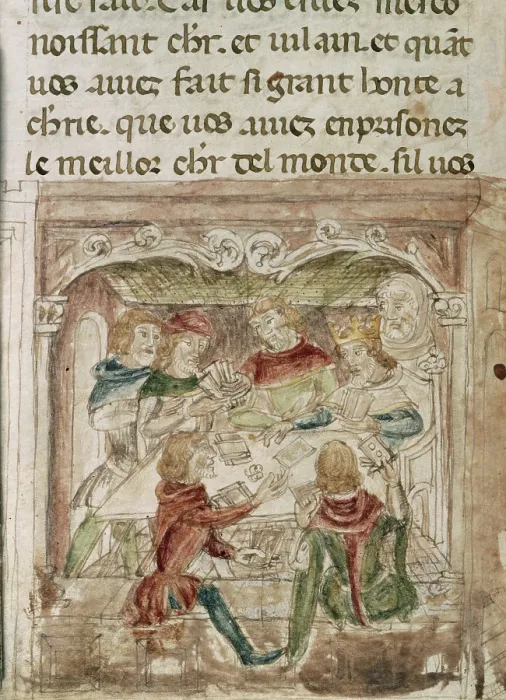 Car uos estiez mesco
noissant chr. et uilain. et quāt
uos auiez fait si grant honte a
chrie. que uos auiez enprisonez
le meillor chr del monde. sil uos